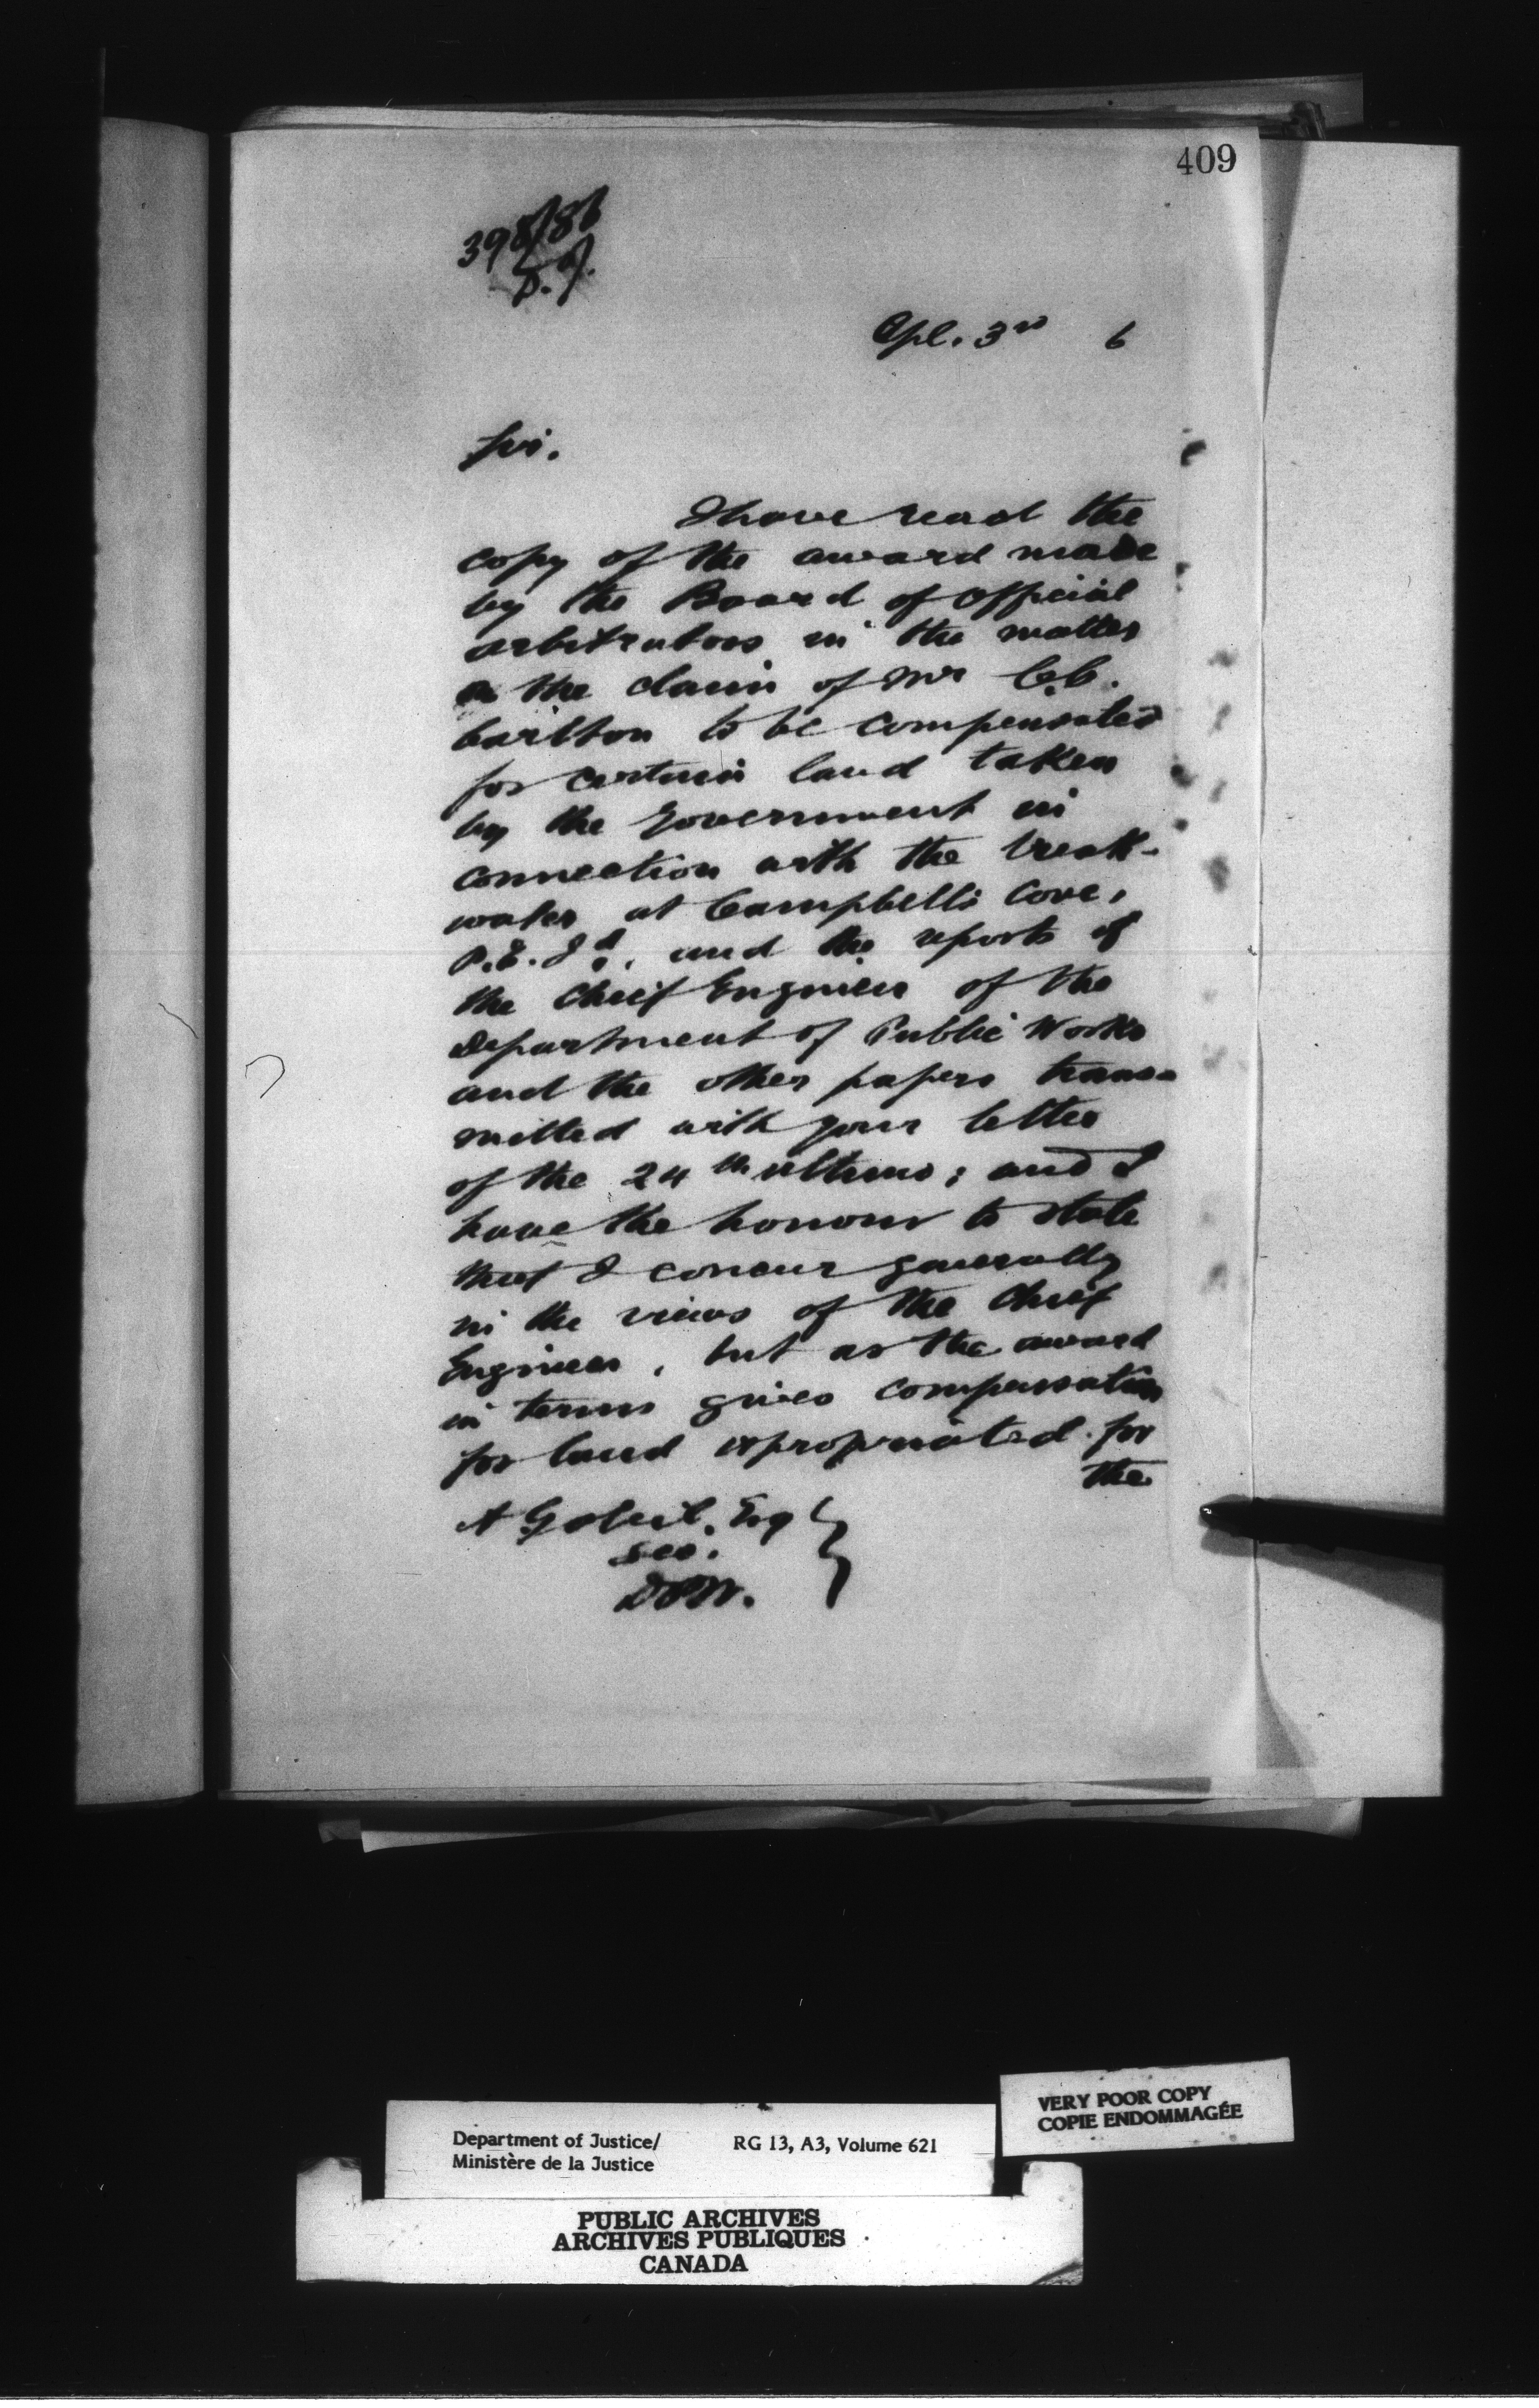 409
398/86
Apl. 3rd 6
Sir.
I have read the
copy of the award made
by the Board of Official
arbitrators in the matter
the claim of Mr C.C.
Carlton to be compensated
for certain land taken
by the Government in
connection with the break-
water at Campbell's Cove,
P.E.Id., and the reports of
the Chief Engineer of the
Department of Public Works
and the other papers trans-
mitted with your letter
of the 24th ultimo; and I
have the honour to state
that I concur generally
in the views of the Chief
Engineer, but as the award
in terms gives compensation
for land expropriated for
the
A Gobeil, Esq
Sec.
DPW.
VERY POOR COPY
COPIE ENDOMMAGÉE
Department of Justice/ RG 13, A3, Volume 621
Ministère de la Justice
PUBLIC ARCHIVES
ARCHIVES PUBLIQUES
CANADA